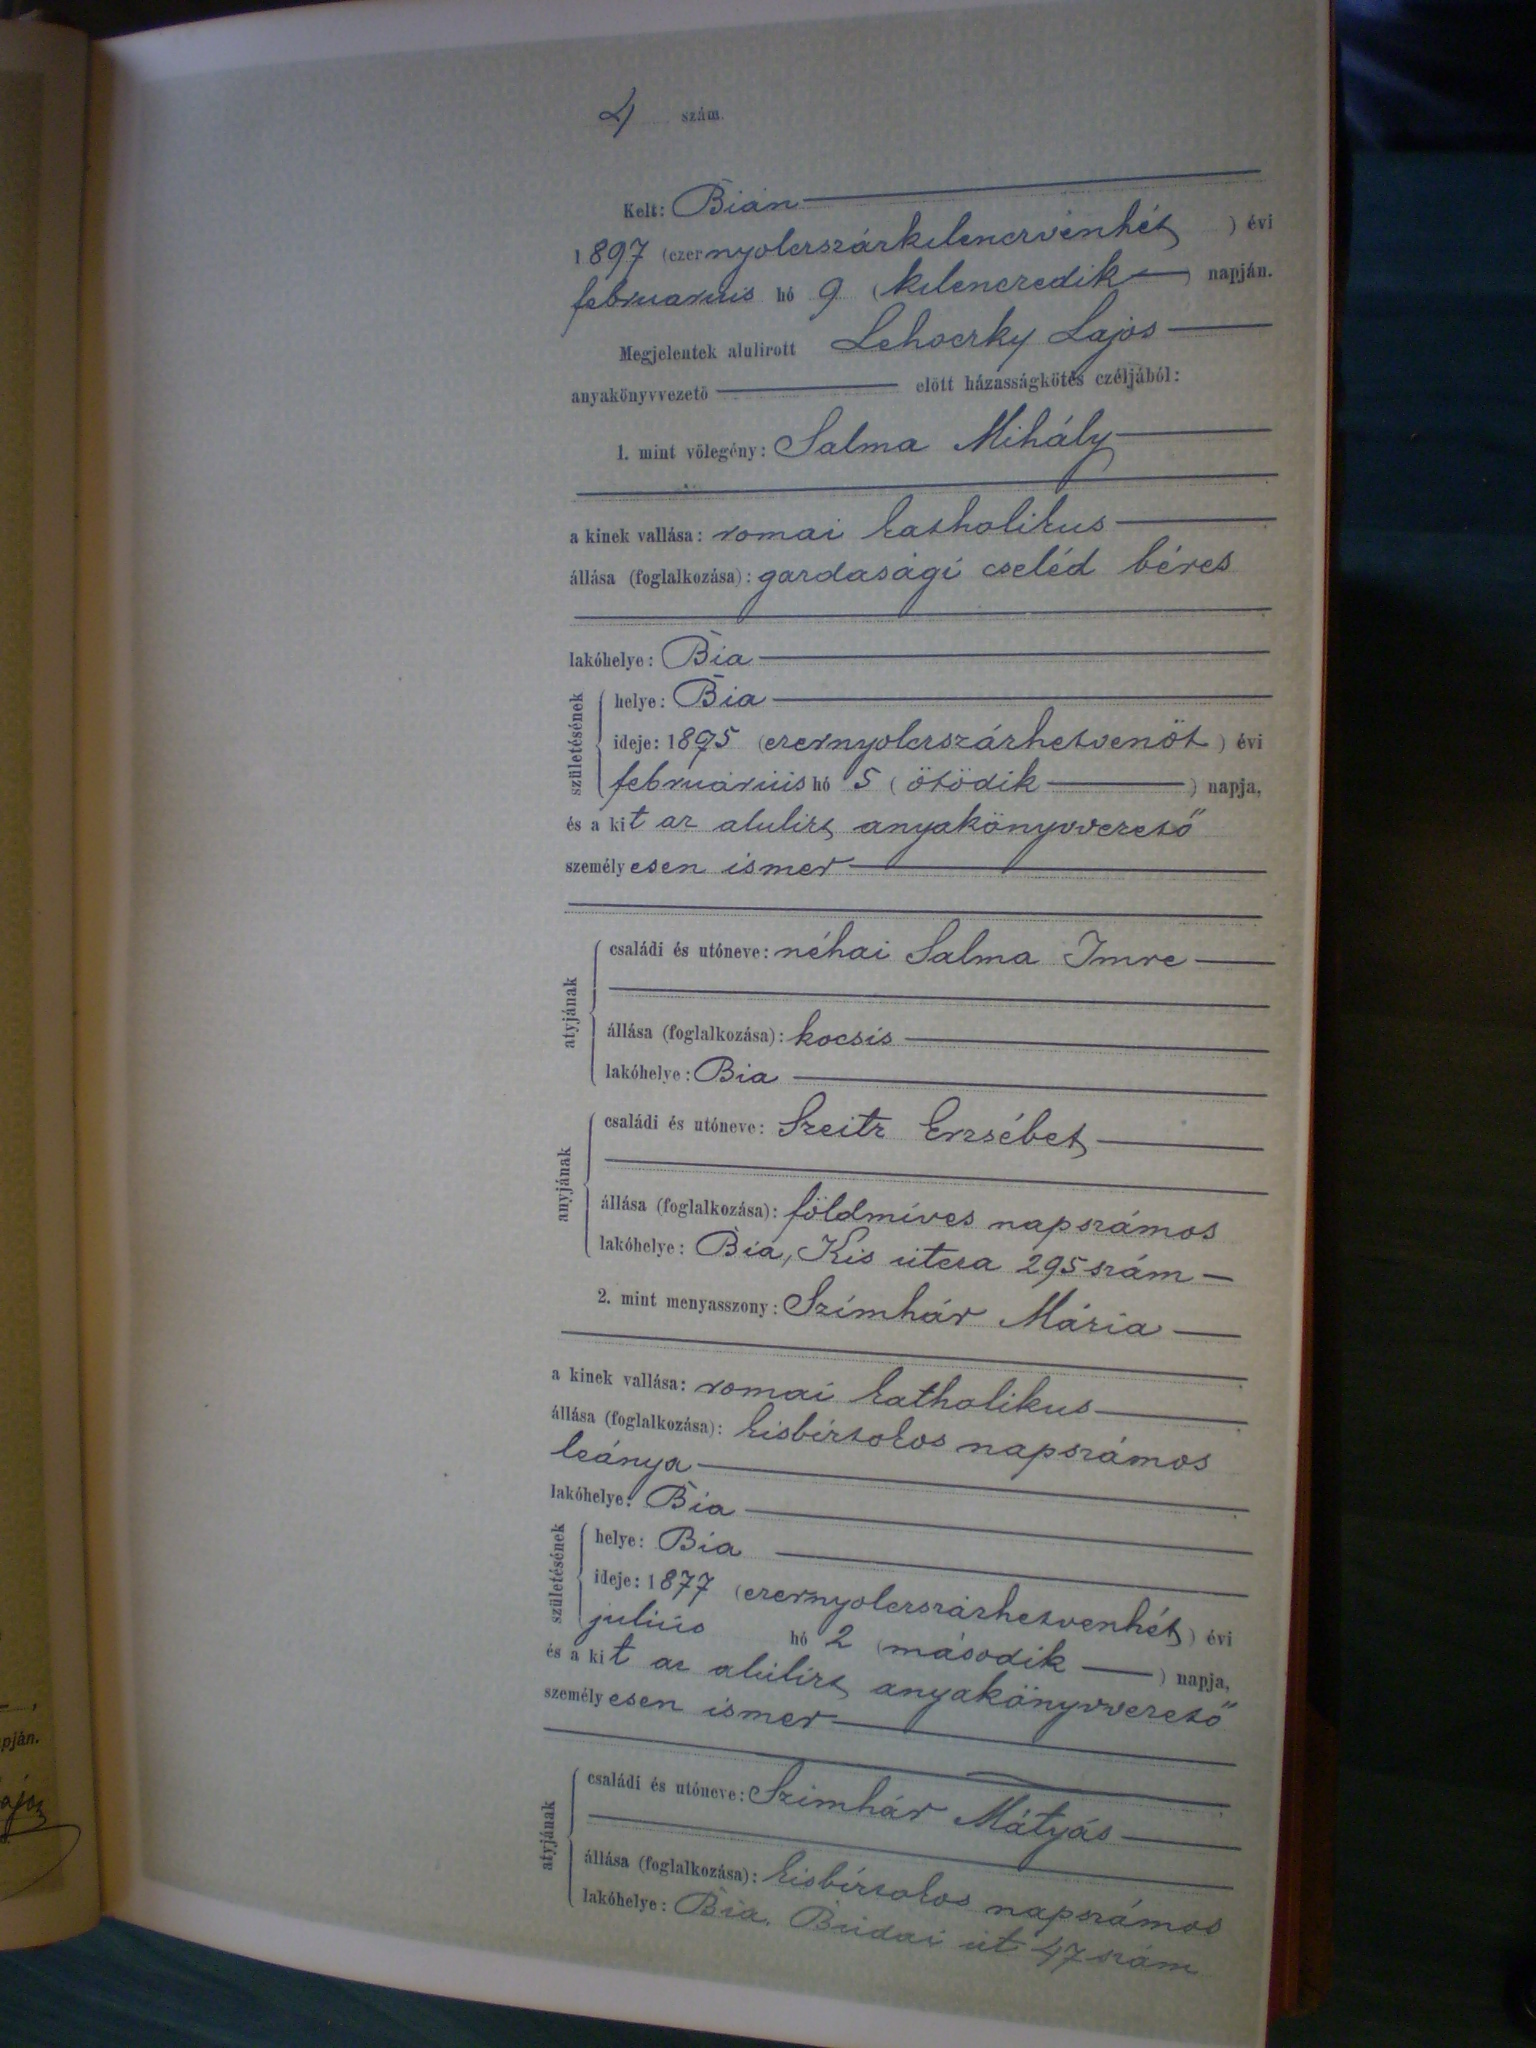 4 szám.
Kelt: Bián
1897 (ezernyolczszázkilenczvenhét) évi
februarius hó 9 (kilenczedik) napján.
Megjelentek alulirott Lehoczky Lajos
anyakönyvvezetö elött házasságkötés czéljából:
1. mint völegény: Salma Mihály
a kinek vallása: romai katholikus
állása (foglalkozása): gazdasági cseléd béres
lakóhelye: Bia
születésének
helye: Bia
ideje: 1875 (ezernyolczszázhetvenöt) évi
februárius hó 5 (ötödik) napja,
és a kit az alulirt anyakönyvvezető
személyesen ismer
atyjának
családi és utóneve: néhai Salma Imre
állása (foglalkozása): kocsis
lakóhelye: Bia
anyjának
családi és utóneve: Szeitz Erzsébet
állása (foglalkozása): földmíves napszámos
lakóhelye: Bia, Kis utcza 295 szám
2. mint menyasszony: Szímhár Mária
a kinek vallása: romai katholikus
állása (foglalkozása): kisbirtokos napszámos
leánya
lakóhelye: Bia
születésének
helye: Bia
ideje: 1877 (ezernyolczszázhetvenhét) évi
julius hó 2 (második) napja,
és a kit az alulirt anyakönyvvezető
személyesen ismer
atyjának
családi és utóneve: Szimhár Mátyás
állása (foglalkozása): kisbírtokos napszámos
lakóhelye: Bia, Budai út 47 szám
pján.